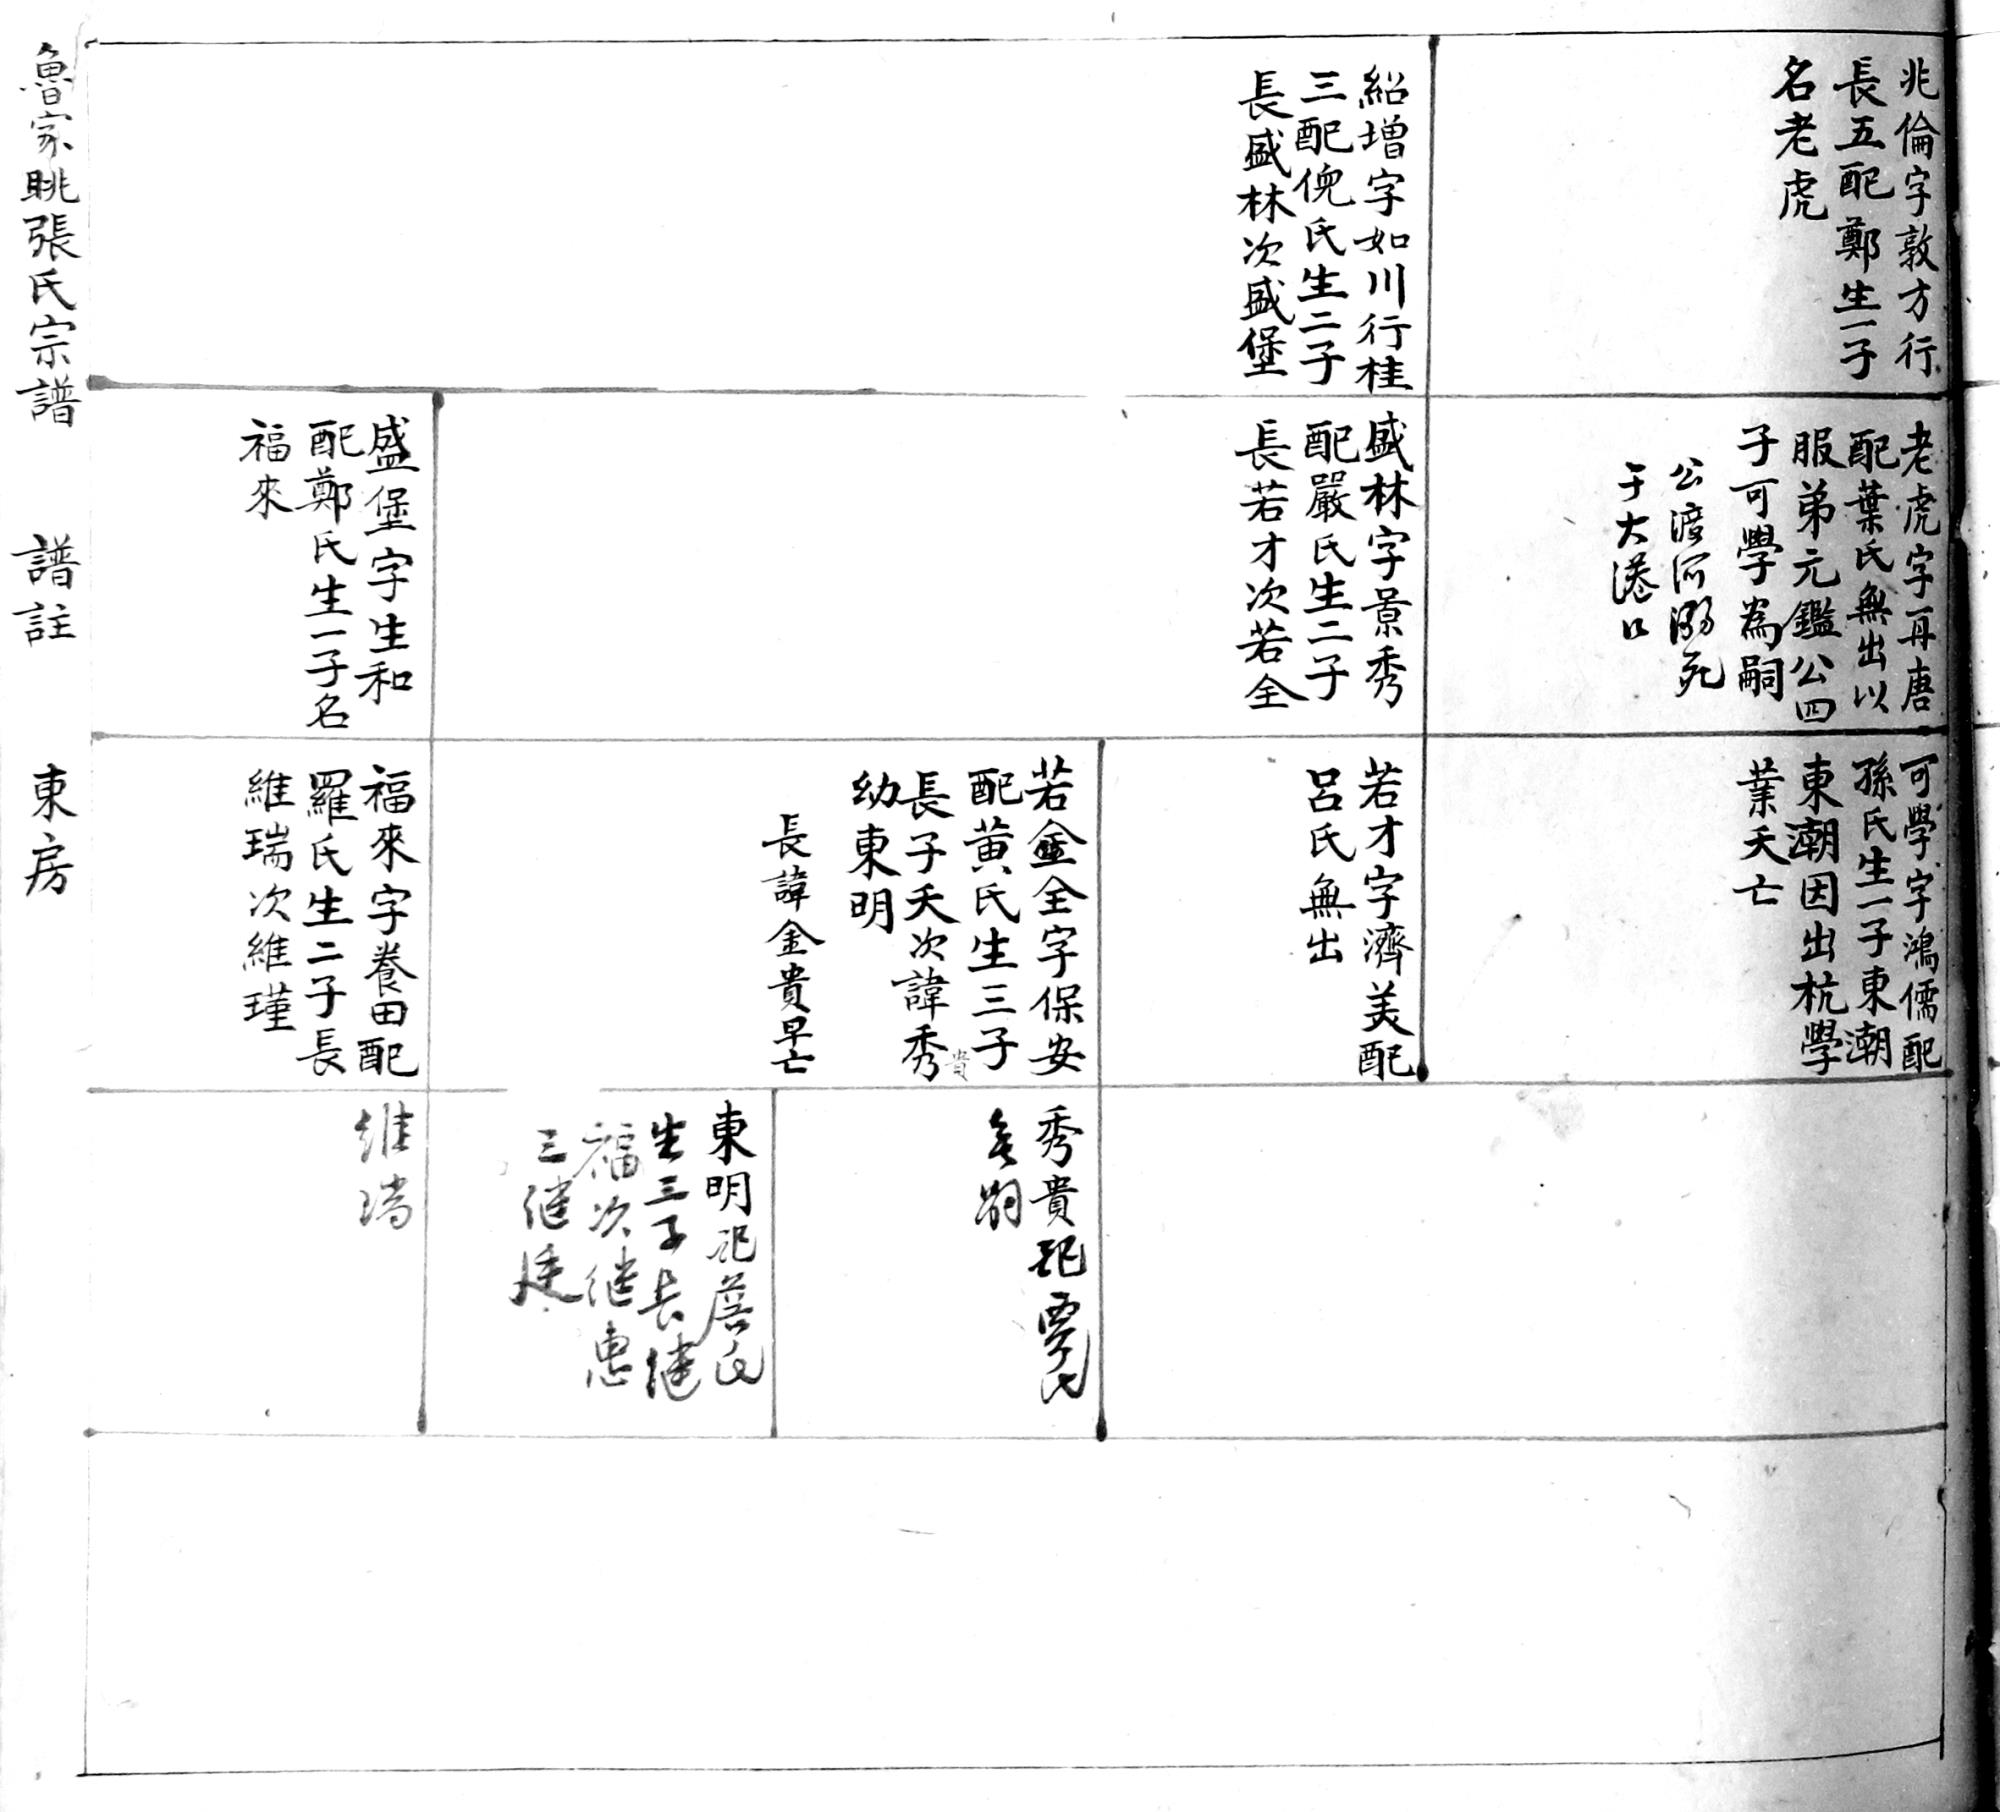 兆倫字敦方行
長五配鄭生一子
名老虎
紹增字如川行桂
三配倪氏生二子
長盛林次盛堡
老虎字再唐
配葉氏無出以
服弟元鑑公四
子可學為嗣
公渡河溺死
于大港口
盛林字景秀
配嚴氏生二子
長若才次若全
盛堡字生和
配鄭氏生一子名
福來
可學字鴻儒配
孫氏生一子東潮
東潮因出杭學
業夭亡
若才字濟美配
呂氏無出
若金全字保安
配黄氏生三子
長子夭次諱秀貴
幼東明
長諱金貴早亡
福來字養田配
羅氏生二子長
維瑞次維瑾
秀貴配覃氏
無嗣
東明配詹氏
生三子長继
福次继惠
三继廷
维瑞
魯家眺張氏宗譜 譜註 東房